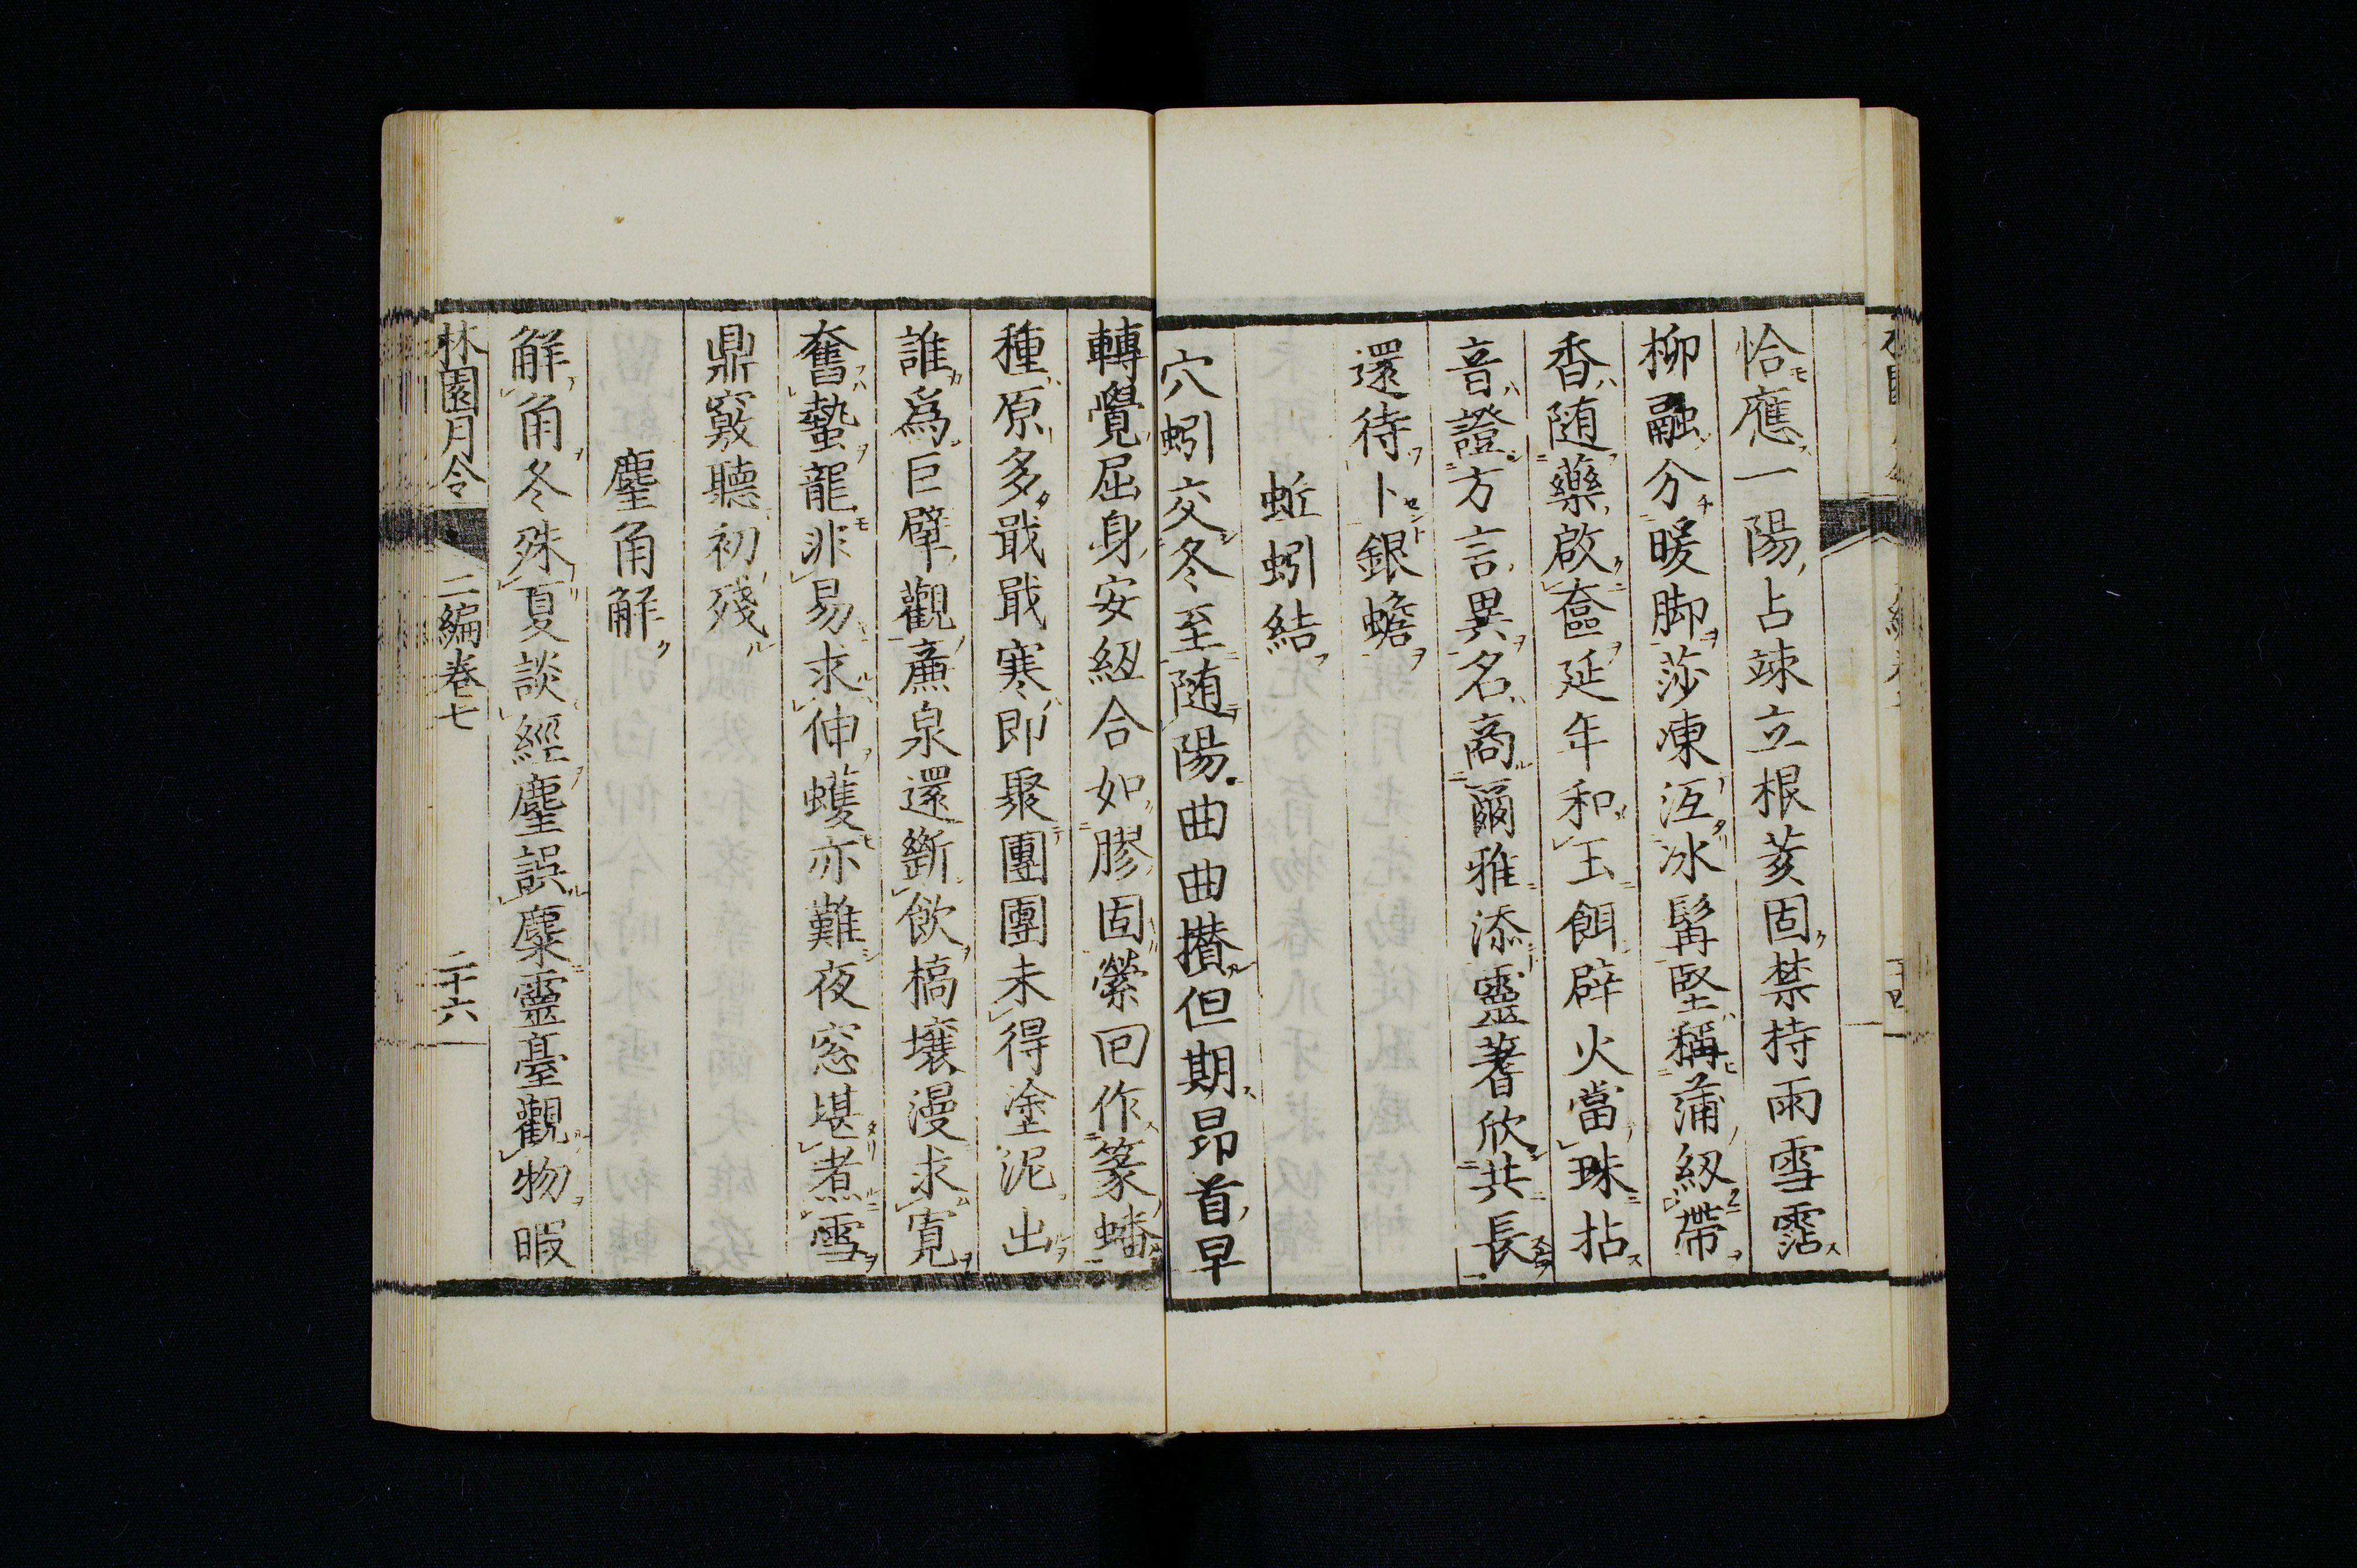 恰應一陽占竦立根荄固禁持雨雪霑
柳融分暖脚莎凍沍冰髯堅稱蒲紉帶
香随藥啟奩延年和玉餌辟火當珠拈
音證方言異名商爾雅添靈蓍欣共長
還待卜銀蟾
蚯蚓結
穴蚓交冬至随陽曲曲攅但期昻首早
轉覺屈身安紐合如膠固縈回作篆蟠
種原多戢戢寒即聚團團未得塗泥出
誰為巨擘觀廉泉還斷飲槁壤漫求寛
奮蟄龍非易求伸蠖亦難夜窓堪煮雪
鼎竅聽初殘
麈角解
解角冬殊夏談經麈誤麋靈臺觀物暇
林園月令 二編卷七 二十六